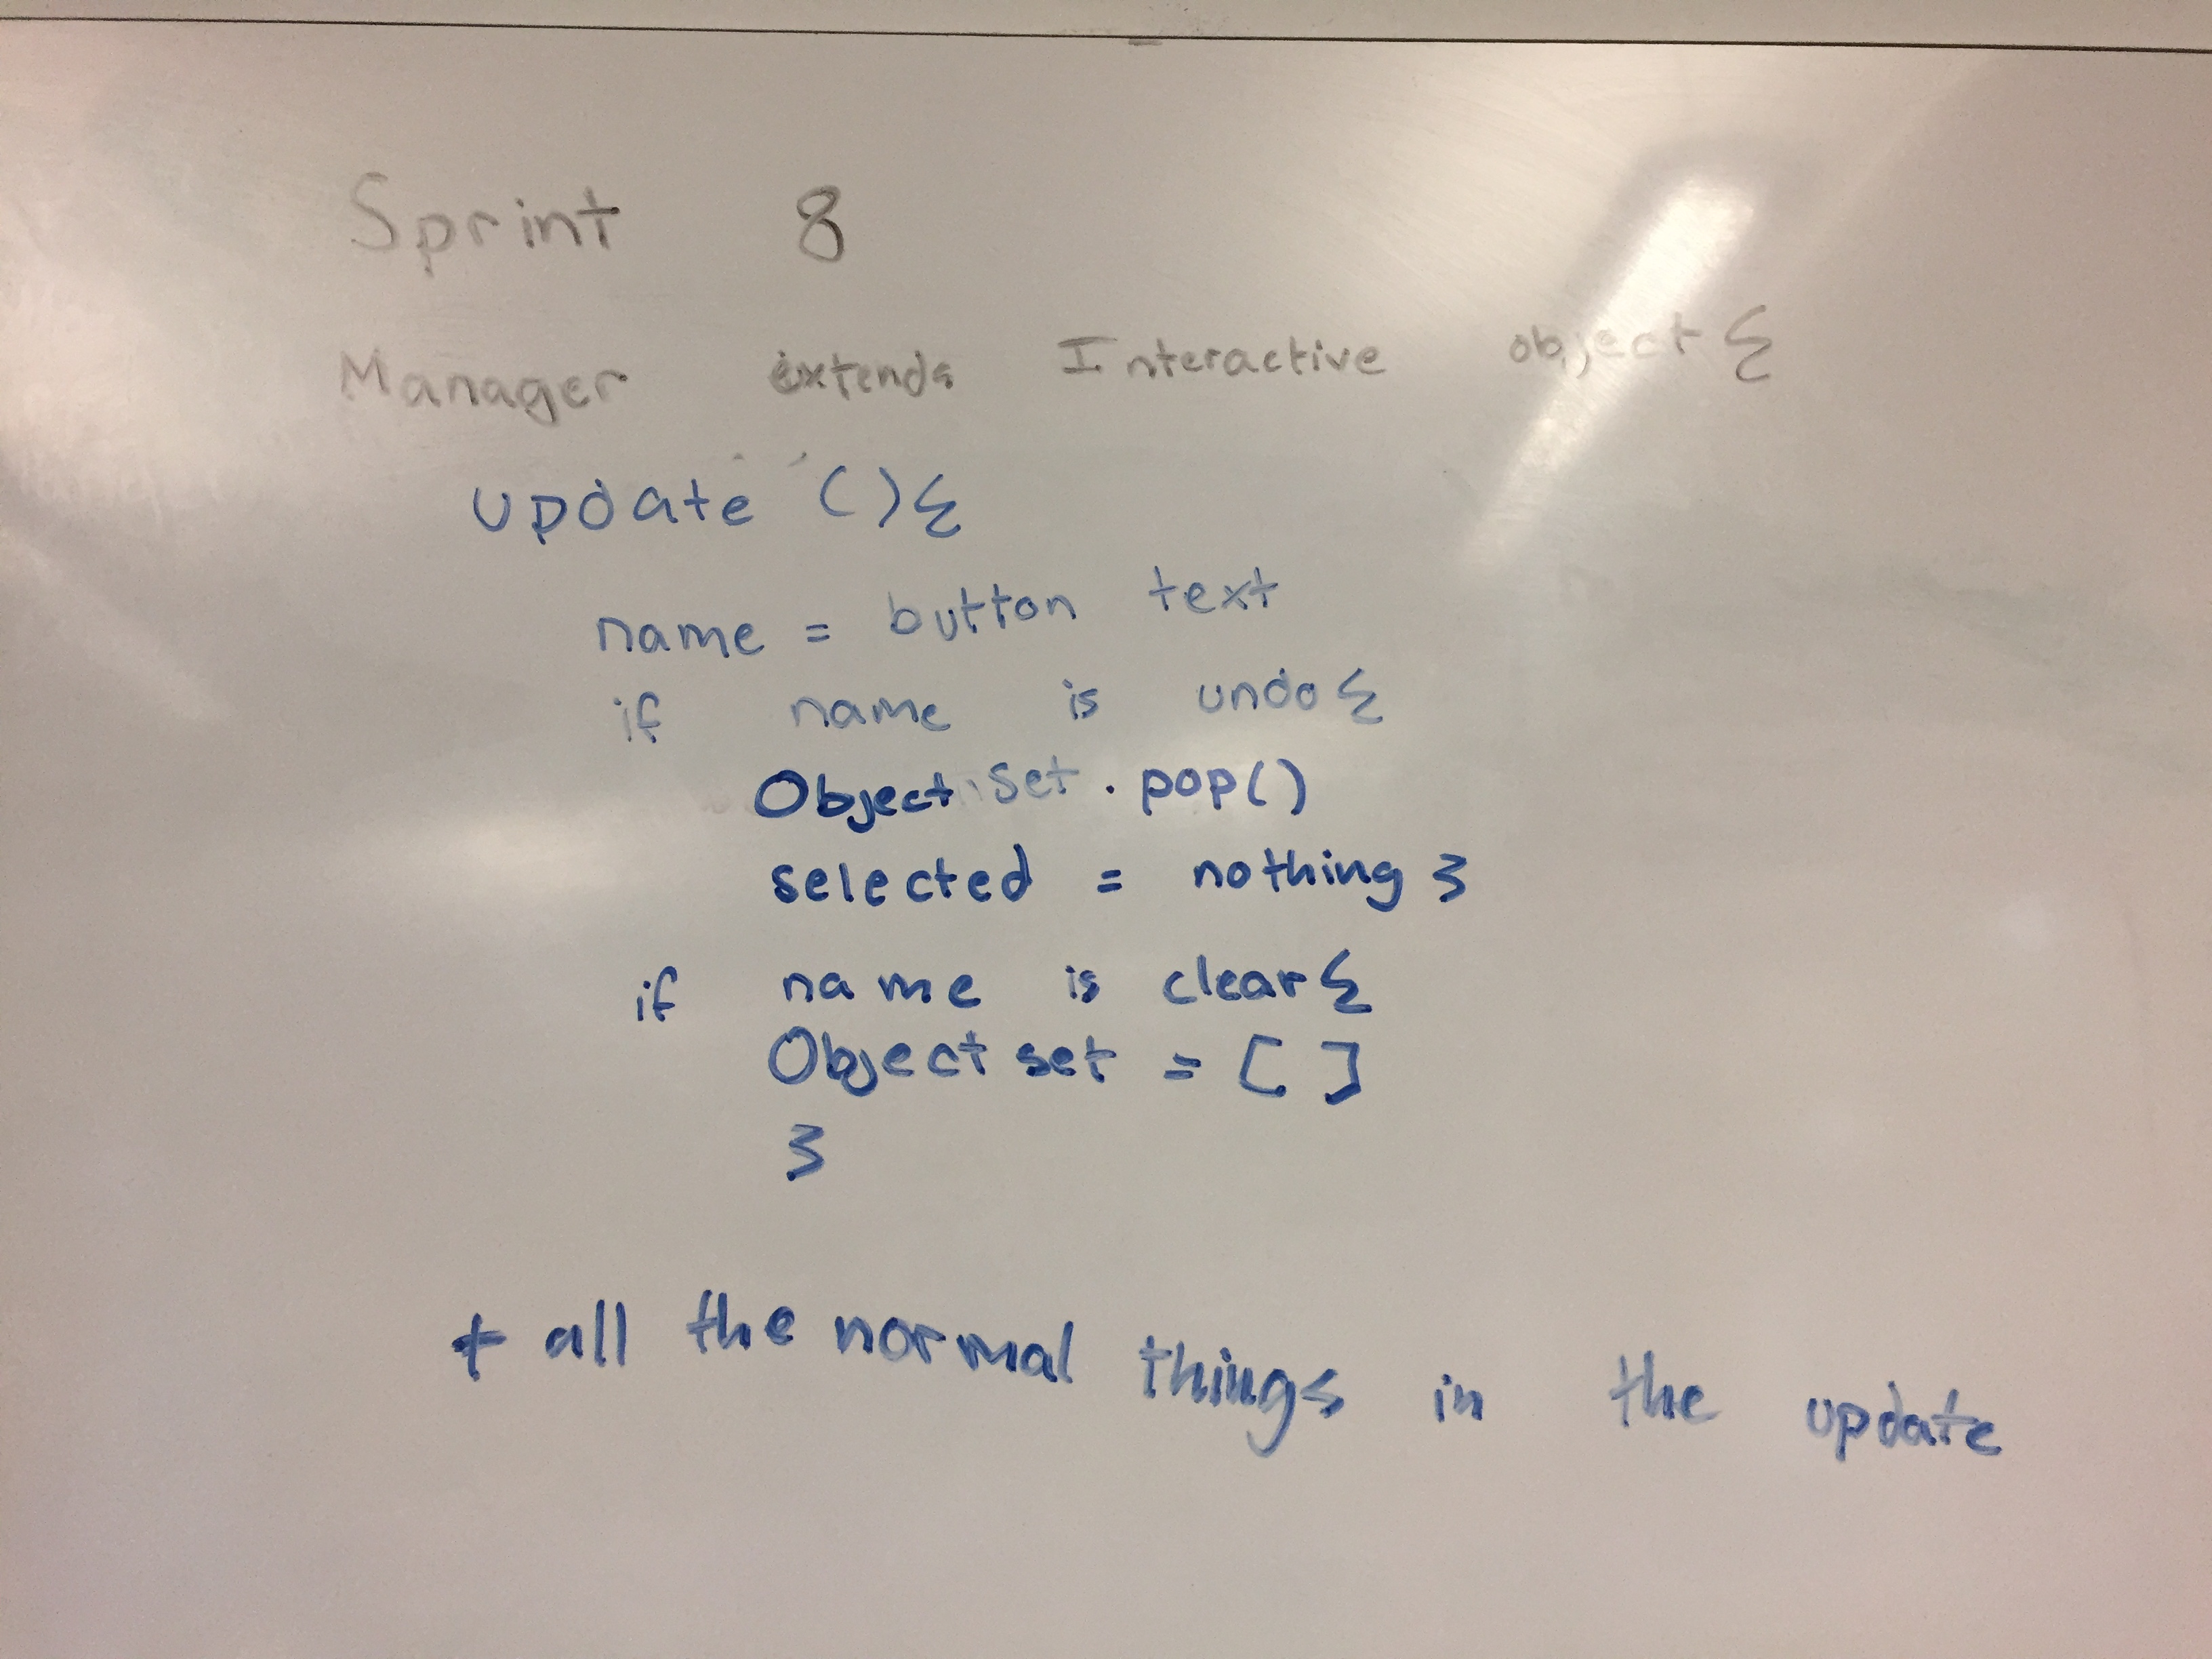 Sprint 8
Manager extends Interactive object {
update () {
name = button text
if name is undo {
Object set . pop()
selected = nothing }
if name is clear {
Object set = [ ]
}
+ all the normal things in the update